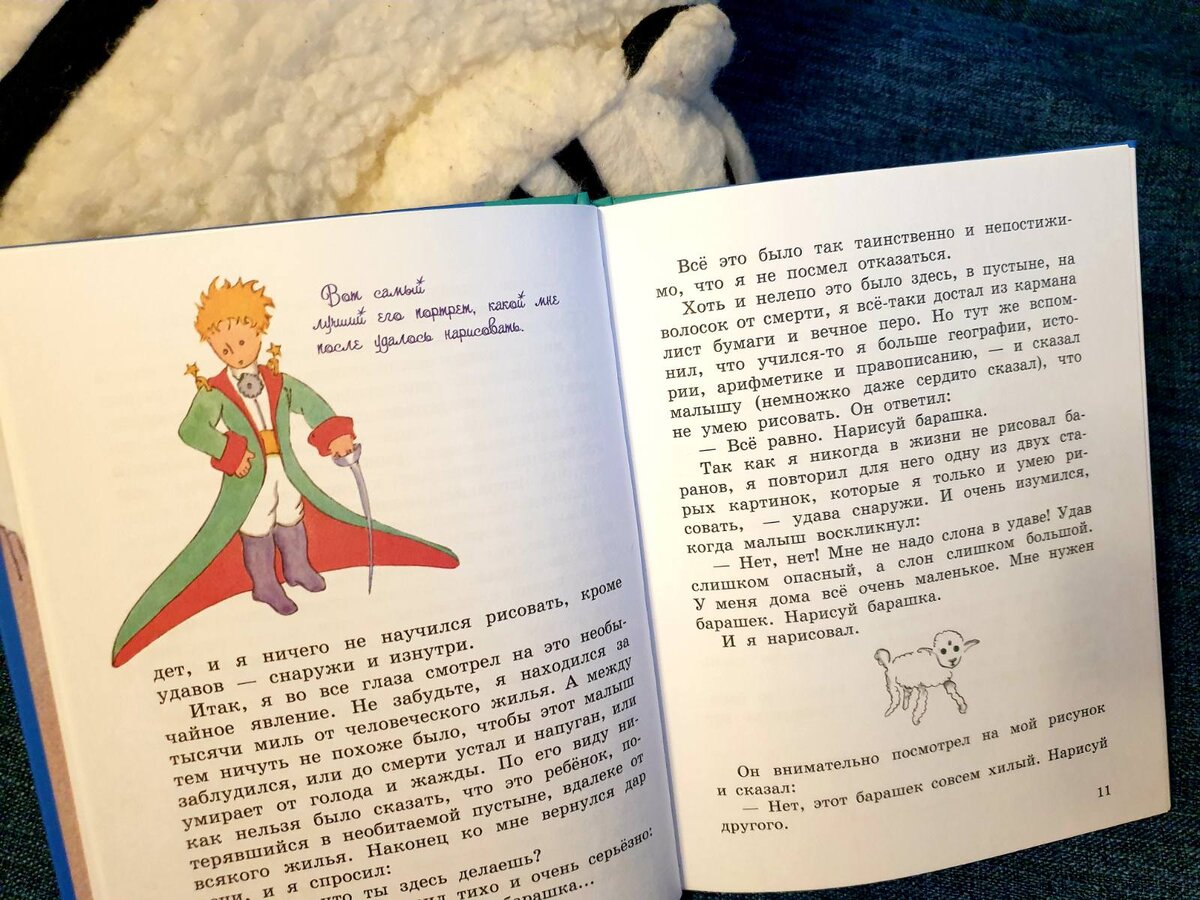 Вот самый
лучший его портрет, какой мне
после удалось нарисовать.
дет, и я ничего не научился рисовать, кроме
удавов — снаружи и изнутри.
Итак, я во все глаза смотрел на это необы-
чайное явление. Не забудьте, я находился за
тысячи миль от человеческого жилья. А между
тем ничуть не похоже было, чтобы этот малыш
заблудился, или до смерти устал и напуган, или
умирает от голода и жажды. По его виду ни-
как нельзя было сказать, что это ребёнок, по-
терявшийся в необитаемой пустыне, вдалеке от
всякого жилья. Наконец ко мне вернулся дар
и я спросил:
ты здесь делаешь?
тихо и очень серьёзно:
барашка...
Всё это было так таинственно и непостижи-
мо, что я не посмел отказаться.
Хоть и нелепо это было здесь, в пустыне, на
волосок от смерти, я всё-таки достал из кармана
лист бумаги и вечное перо. Но тут же вспом-
нил, что учился-то я больше географии, исто-
рии, арифметике и правописанию, — и сказал
малышу (немножко даже сердито сказал), что
не умею рисовать. Он ответил:
— Всё равно. Нарисуй барашка.
Так как я никогда в жизни не рисовал ба-
ранов, я повторил для него одну из двух ста-
рых картинок, которые я только и умею ри-
совать, — удава снаружи. И очень изумился,
когда малыш воскликнул:
— Нет, нет! Мне не надо слона в удаве! Удав
слишком опасный, а слон слишком большой.
У меня дома всё очень маленькое. Мне нужен
барашек. Нарисуй барашка.
И я нарисовал.
Он внимательно посмотрел на мой рисунок
и сказал:
— Нет, этот барашек совсем хилый. Нарисуй
другого.
11